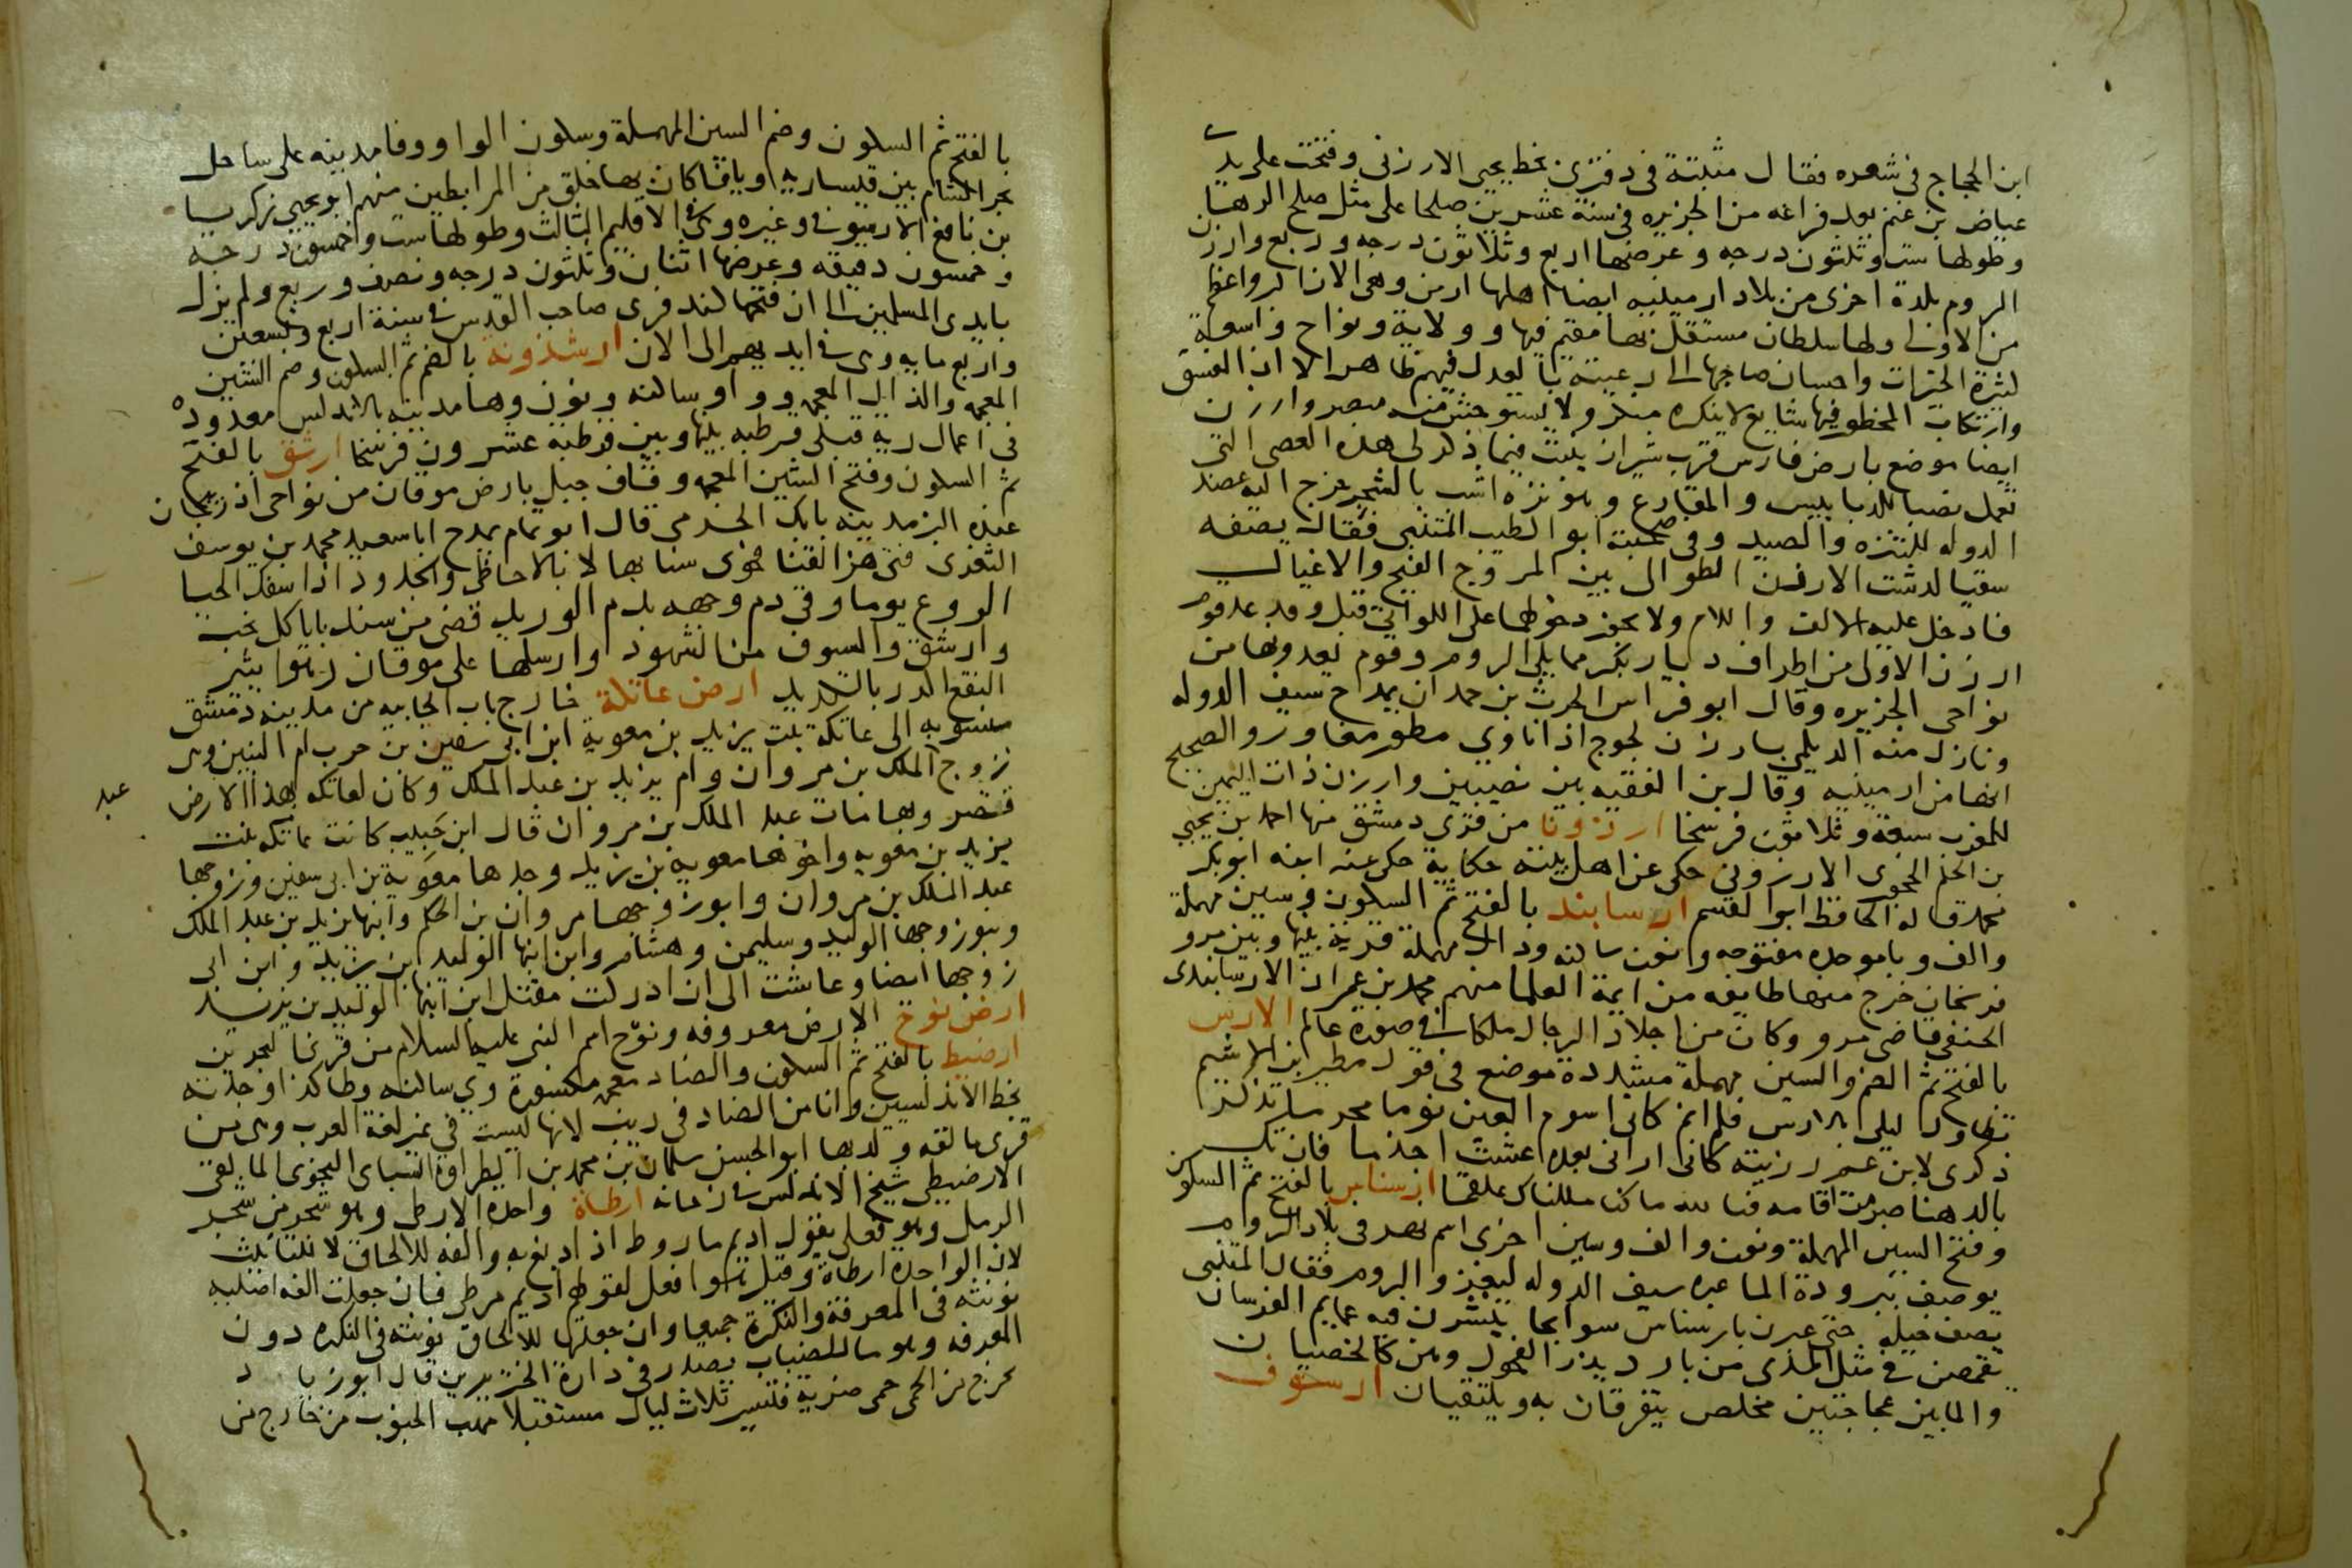 ابن الحجاج في شعره فقال مثبتة في دفتري بخط يحيى الارزني وفتحت على يد
عياض بن غنم بعد فراغه من الجزيره في سنة عشرين صلحا على مثل صلح الرها
وطولها ست وثلثون درجه وعرضها اربع وثلاثون درجه وربع وارزن
الروم بلدة اخرى من بلاد ارمينيه ايضا اهلها ارمن وهي الان اكبر واعظم
من الاولى ولها سلطان مستقل بها مقيم فيها وولاية ونواح واسعة
كثيرة الخيرات واحسان صاحبها الى رعيته بالعدل فيهم ظاهر الا ان الفسق
وارتكاب المحظور فيها شايع لا ينكره منكر ولا يستوحش منه مبصر وارزن
ايضا موضع بارض فارس قرب شيراز ينبت فيما ذكر لي هذه العصي التي
تعمل نصبا للدبابيس والمقارع وهو نزه اشب بالشجر خرج اليه عضد
الدوله للتنزه والصيد وفي صحبته ابو الطيب المتنبي فقال يصفه
سقيا لدشت الارزن الطوال بين المروج الفيح والاغيال
فادخل عليه الالف واللام ولا يجوز دخولها على اللواتي قبل وقد عد قوم
ارزن الاولى من اطراف ديار بكر مما يلي الروم وقوم يعدونها من
نواحي الجزيره وقال ابو فراس الحرث بن حمدان يمدح سيف الدوله
ونازل منه الديلمي بارزن لجوج اذا ناوي مطور مغاور والصحيح
انها من ارمينيه وقال بن الفقيه بين نصيبين وارزن ذات اليمين
للمغرب سبعة وثلاثون فرسخا ارزونا من قرى دمشق منها احمد بن يحيى
بن احمد الحجوري الارزوني حكى عن اهل بيته حكاية حكى عنه ابنه ابو بكر
محمد قاله الحافظ ابو القسم ارسابند بالفتح ثم السكون وسين مهملة
والف وبا موحده مفتوحه ونون ساكنه ودال مهملة قرية بينها وبين مرو
فرسخان خرج منها طايفه من ايمة العلما منهم محمد بن عمران الارسابندي
الحنفي قاضي مرو وكان من اجلاد الرجال ملكا في صورة عالم الارس
بالفتح ثم الضم والسين مهملة مشددة موضع في قول مطير بن الاشيم
تطاول ليلي بالارس فلم انم كاني اسوم العين نوما محرما تذكر
ذكرى لابن عم رزيته كاني اراني بعده عشت اجذما فان تك
بالدهنا صرمت اقامه فبالله ما كنا مللناك علقما ارسناس بالفتح ثم السكون
وفتح السين المهملة ونون والف وسين اخرى اسم نهر في بلاد الروم
يوصف ببرودة الما عبره سيف الدوله ليغزو الروم فقال المتنبي
يصف خيله حتى عبرن بارسناس سوابحا ينشرن فيه عمايم الفرسان
يقمصن في مثل المدى من بارد يذر الفحول وهن كالخصيان
والما بين عجاجتين مخلص يتفرقان به ويلتقيان ارسوف
بالفتح ثم السكون وضم السين المهملة وسكون الواو وفا مدينه على ساحل
بحر الشام بين قيساريه ويافا كان بها خلق من المرابطين منهم ابو يحيى زكريا
بن نافع الارسوفي وغيره وهي في الاقليم الثالث وطولها ست وخمسون درجه
وخمسون دقيقه وعرضها اثنان وثلثون درجه ونصف وربع ولم تزل
بايدي المسلمين الى ان فتحها كندفري صاحب القدس في سنة اربع وتسعين
واربع مايه وهي في ايديهم الى الان ارشذونة بالضم ثم السكون وضم الشين
المعجمه والذال المعجمه وواو ساكنه ونون وها مدينه بالاندلس معدوده
في اعمال رية قبلي قرطبه بينها وبين قرطبه عشرون فرسخا ارشق بالفتح
ثم السكون وفتح الشين المعجمه وقاف جبل بارض موقان من نواحي اذربيجان
عنده البذ مدينه بابك الخرمي قال ابو تمام يمدح ابا سعيد محمد بن يوسف
الثغري فتى هز القنا فحوى سنا بها لا بالاحاظي والجدود اذا سفك الحيا
الروع يوما وقى دم وجهه بدم الوريد قضى من سندبايا كل نحب
وارشق والسيوف من الشهود وارسلها على موقان رهوا يثير
النقع اكدر بالكديد ارض عاتكة خارج باب الجابيه من مدينه دمشق
منسوبه الى عاتكة بنت يزيد بن معوية ابن ابي سفين بن حرب ام البنين وهي
زوج الملك بن مروان وام يزيد بن عبد الملك وكان لعاتكه بهذا الارض
عبد
قصر وبها مات عبد الملك بن مروان قال ابن حبيب كانت عاتكه بنت
يزيد بن معويه واخوها معويه بن يزيد وجدها معوية بن ابي سفين وزوجها
عبد الملك بن مروان وابو زوجها مروان بن الحكم وابنها يزيد بن عبد الملك
وبنو زوجها الوليد وسليمن وهشام وابن ابنها الوليد ابن يزيد وابن ابن
زوجها ايضا وعاشت الى ان ادركت مقتل ابن ابنها الوليد بن يزيد
ارض نوح الارض معروفه ونوح اسم النبي عليه السلام من قرى البحرين
ارضيط بالفتح ثم السكون والضاد معجمه مكسورة وي ساكنه وطا كذا وجدته
بخط الاندلسيين وانا من الضاد في ريب لانها ليست في غير لغة العرب وهي من
قرى مالقه ولد بها ابو الحسن سليمان بن محمد بن الطراوة السباي النحوي المالقي
الارضيطي شيخ الاندلس في زمانه ارطاة واحدة الارطى وهو شجر من شجر
الرمل وهو فعلى يقول اديم ماروط اذا دبغ به والفه للالحاق لا للتانيث
لان الواحدة ارطاة وقيل هو افعل لقولهم اديم مرطي فان جعلت الفه اصليه
نونته في المعرفة والنكرة جميعا وان جعلتها للالحاق نونته في النكره دون
المعرفه وهو ما للضباب يصدر في دارة الخنزيرين قال ابو زياد
تخرج من الحمى حمى ضرية فتسير ثلاث ليال مستقبلا مهب الجنوب من خارج من